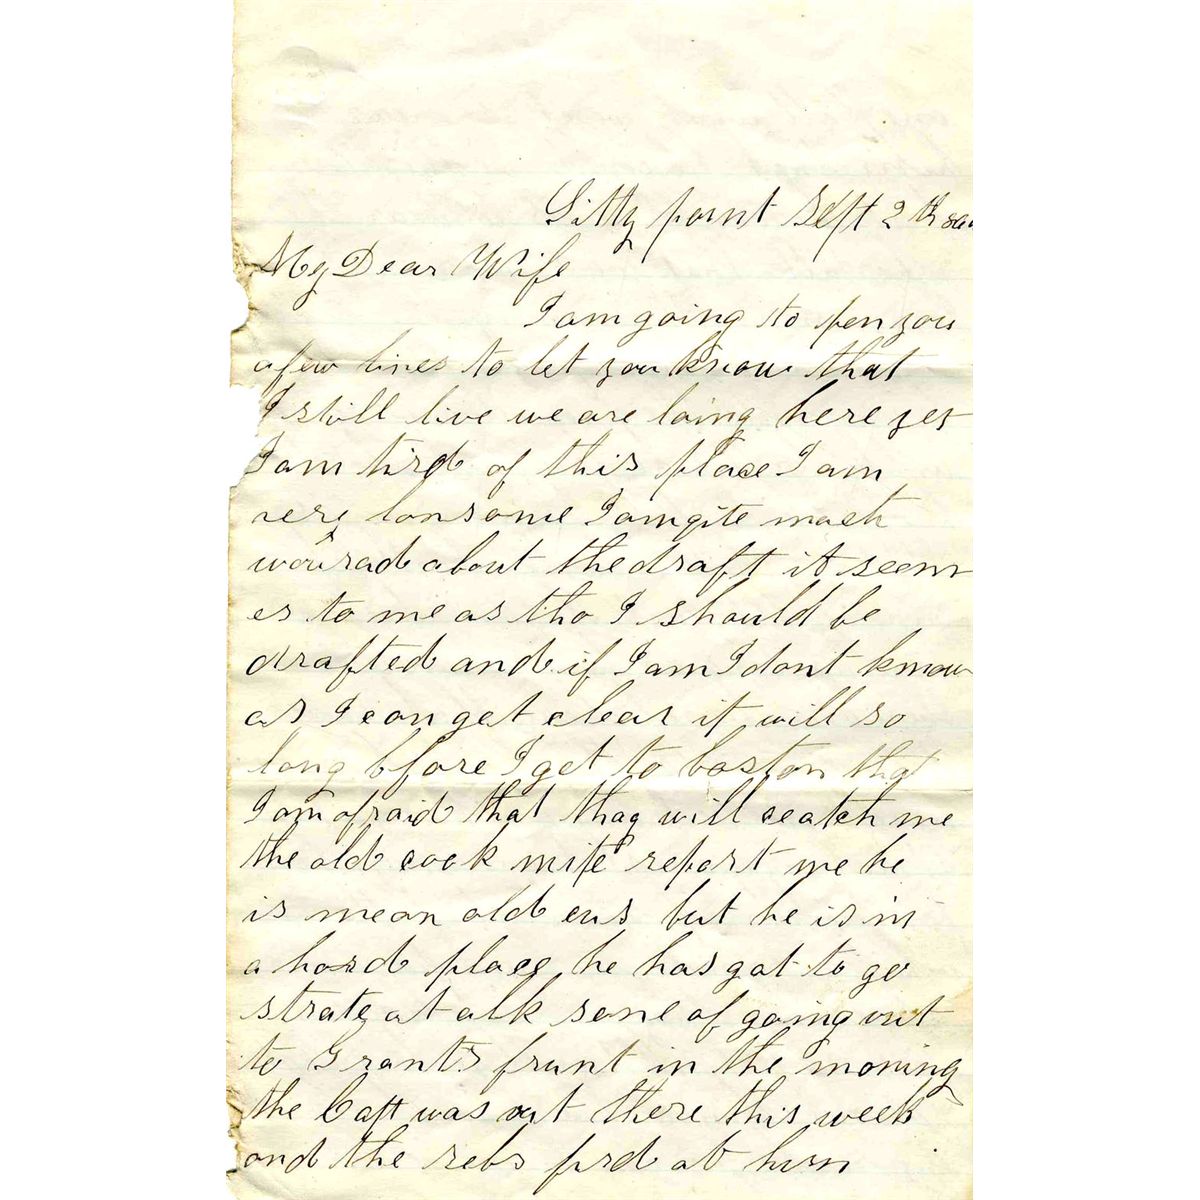 Sitty point Sept 2th
My Dear Wife
I am going to pen you
a few lines to let you know that
I still live we are laing here yet
I am tird of this place I am
very lonsome I am qite mach
wourad about the draft it seem
es to me as tho I should be
drafted and if I am I dont know
as I can get clear it will so
long bfore I get to boston that
I am afraid that thay will ceatch me
the old cook mite report me he
is mean old cus but he is in
a hard place he has got to go
strate a talk some of going out
to Grants frunt in the morning
the Capt was out there this week
and the rebs fird at him